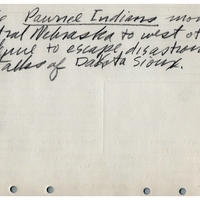 Pawnee Indians mov
tral Nebraska to west of
to escape disastrou
of Dakota Sioux.